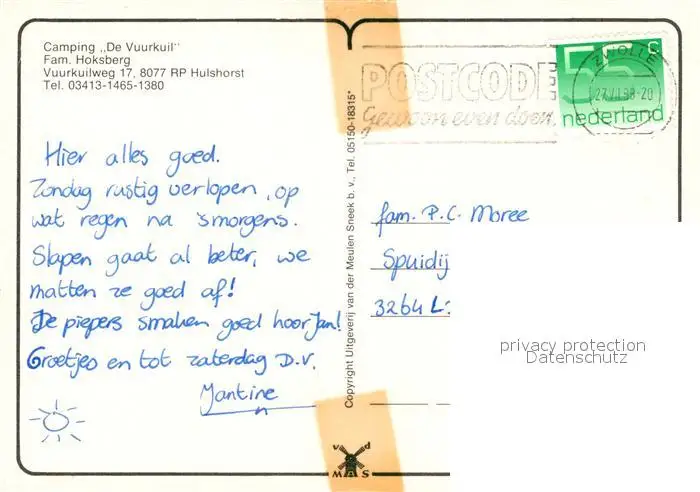 Camping „De Vuurkuil"
Fam. Hoksberg
Vuurkuilweg 17, 8077 RP Hulshorst
Tel. 03413-1465-1380
Hier alles goed.
Zondag rustig verlopen, op
wat regen na 'smorgens.
Slapen gaat al beter, we
matten ze goed af!
De piepers smaken goed hoor Jan!
Groetjes en tot zaterdag D.V.
Jantine
Copyright Uitgeverij van der Meulen Sneek b.v., Tel. 05150-18315*
v d
MAS
POSTCODE
Gewoon even doen.
ZWOLLE
55 c
nederland
fam. P.C. Moree
Spuidij
3264 L
privacy protection
Datenschutz